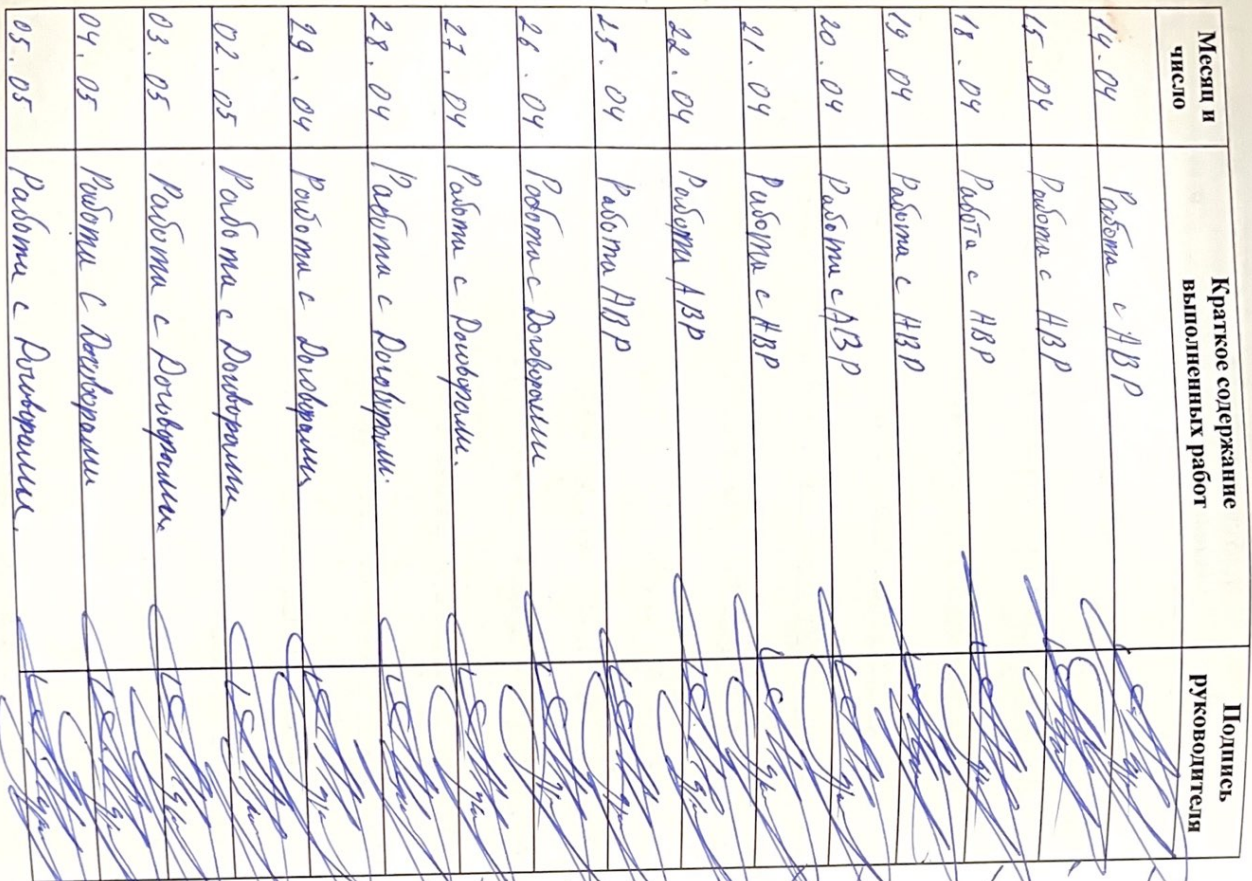 Месяц и число Краткое содержание выполненных работ Подпись руководителя
14.04 Работа с АВР
15.04 Работа с АВР
18.04 Работа с АВР
19.04 Работа с АВР
20.04 Работа с АВР
21.04 Работа с АВР
22.04 Работа АВР
25.04 Работа АВР
26.04 Работа с Договорами
27.04 Работа с Договорами.
28.04 Работа с Договорами.
29.04 Работа с Договорами
02.05 Работа с Договорами
03.05 Работа с Договорами.
04.05 Работа с Договорами
05.05 Работа с Договорами.